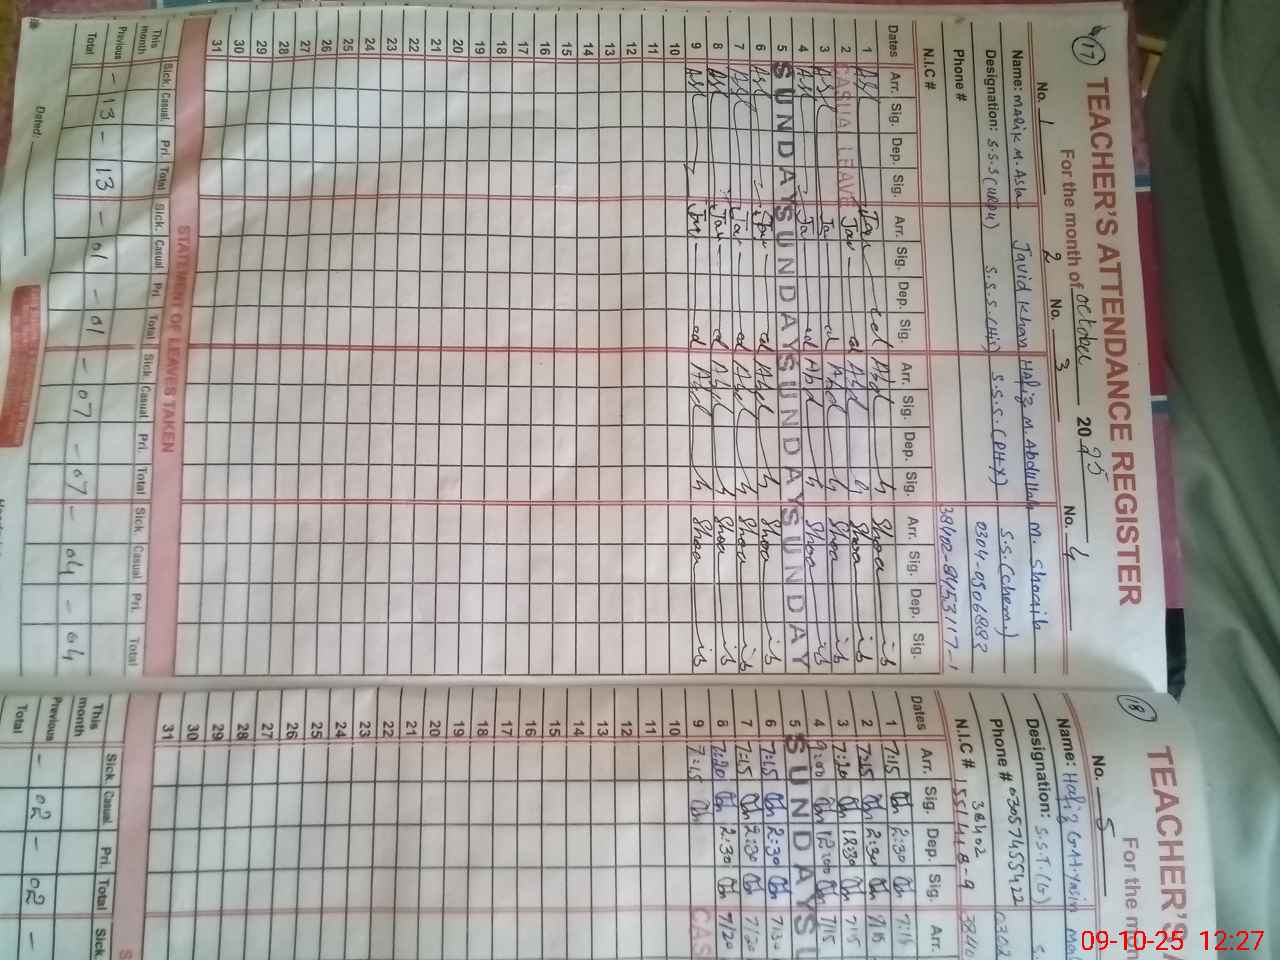 17
TEACHER'S ATTENDANCE REGISTER
For the month of October 2025
No. 1 2 No. 3 No. 4
Name: Malik M. Asla Javid Khan Hafiz M. Abdullah M. Shoaib
Designation: S.S.S (URDU) S.S.S. (His) S.S.S. (PHY) S.S. (Chem)
Phone # 0304-0906883
N.I.C # 38402-8453117-1
Dates Arr. Sig. Dep. Sig. Arr. Sig. Dep. Sig. Arr. Sig. Dep. Sig. Arr. Sig. Dep. Sig.
1 Asl Jav ed Abd h Shoa ib
2 CASUAL LEAVE Jav d Abd h Shoa ib
3 Asl Ja d Abd h Shoa ib
4 Asl Ja id Abd h Shoa ib
5 SUNDAY SUNDAY SUNDAY SUNDAY
6 Asl Jav d Abd h Shoa ib
7 Asl Jav d Abd h Shoa ib
8 Asl Jav d Abd h Shoa ib
9 Asl Jav d Abd h Shoa ib
10
11
12
13
14
15
16
17
18
19
20
21
22
23
24
25
26
27
28
29
30
31
STATEMENT OF LEAVES TAKEN
This month Sick. Casual Pri. Total Sick. Casual Pri Total Sick. Casual Pri. Total Sick. Casual Pri. Total
Previous - 13 - 13 - 01 - 01 - 07 - 07 - 04 - 04
Total
Dated:
18
TEACHER'S
For the mon
No. 5
Name: Hafiz G.M. Yasin
Designation: S.S.T. (G) S.
Phone # 03057455422 0302
N.I.C # 38402 1551418-9 3840
Dates Arr. Sig. Dep. Sig. Arr.
1 7:15 2:30 7:15
2 7:15 2:30 7/15
3 7:20 12:30 7/15
4 9:00 12:00 7/15
5 SUNDAY SU
6 7:15 2:30 7/30
7 7:15 2:30 7/20
8 7:20 2:30 7/20
9 7:15 CAS
10
11
12
13
14
15
16
17
18
19
20
21
22
23
24
25
26
27
28
29
30
31
S
This month Sick. Casual Pri. Total Sick.
Previous - 02 - 02 -
Total
09-10-25 12:27